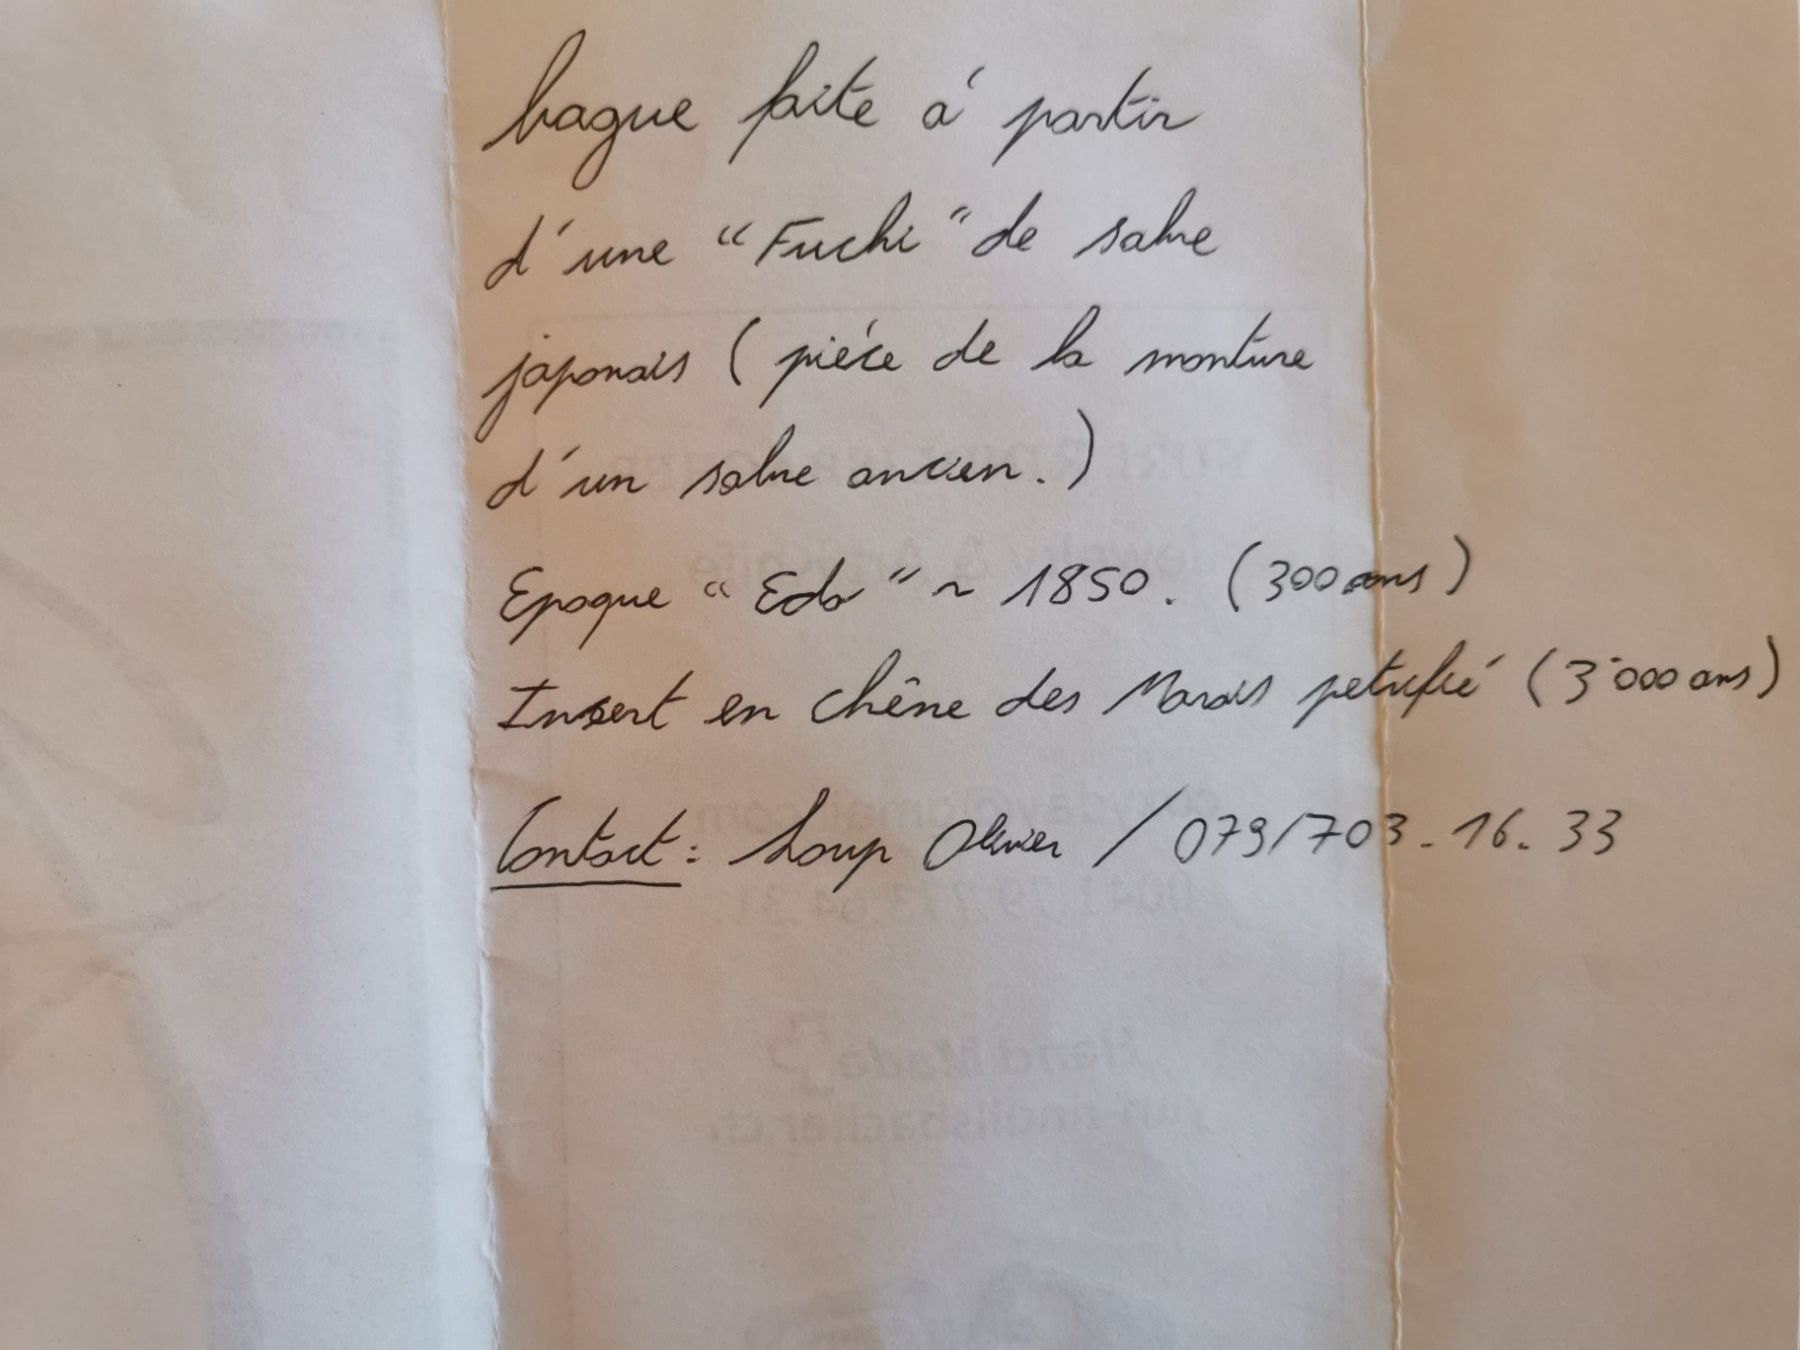 bague faite à partir
d'une "Fuchi" de sabre
japonais (pièce de la monture
d'un sabre ancien.)
Epoque "Edo" ~ 1850. (300 ans)
Insert en chêne des Marais petrifié (3'000 ans)
Contact: Loup Olivier / 079/703.16.33
Hand Made